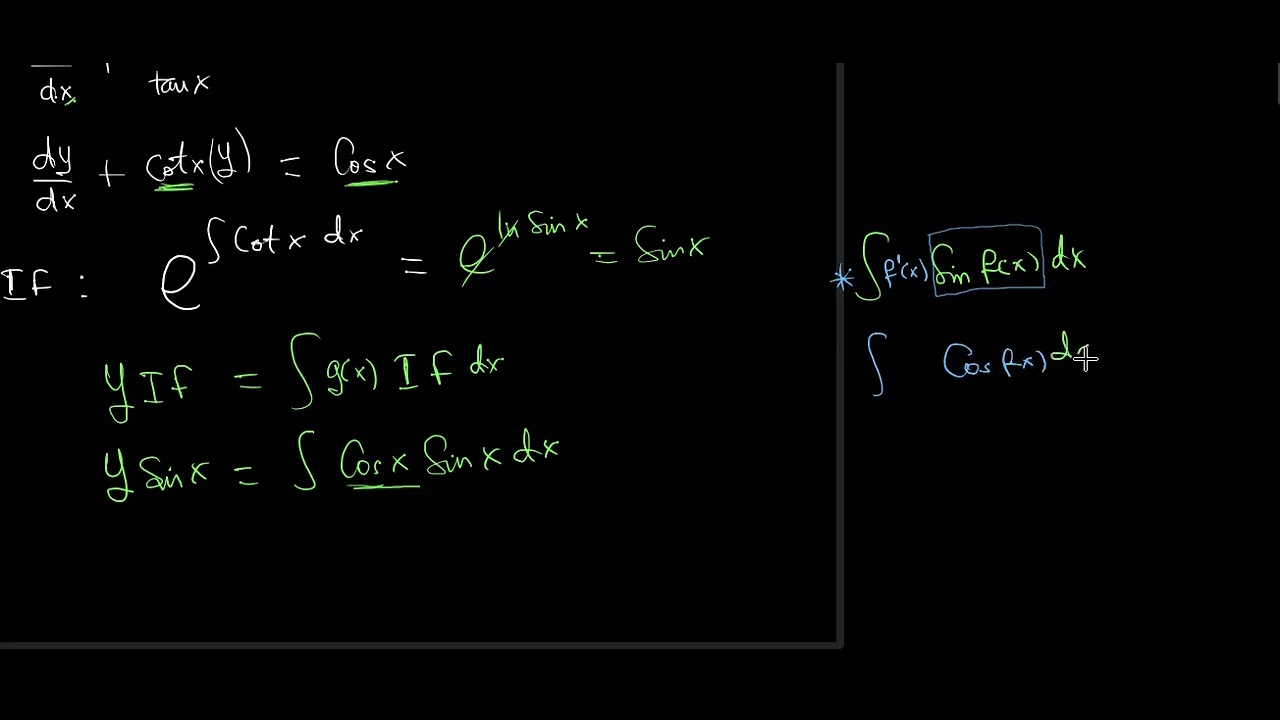 dx tan x
dy/dx + cot x (y) = Cos x
IF : e^∫ Cot x dx = e^ln Sin x = Sin x
y IF = ∫ g(x) IF dx
y Sin x = ∫ Cos x Sin x dx
* ∫ f'(x) Sin f(x) dx
∫ Cos f(x) d